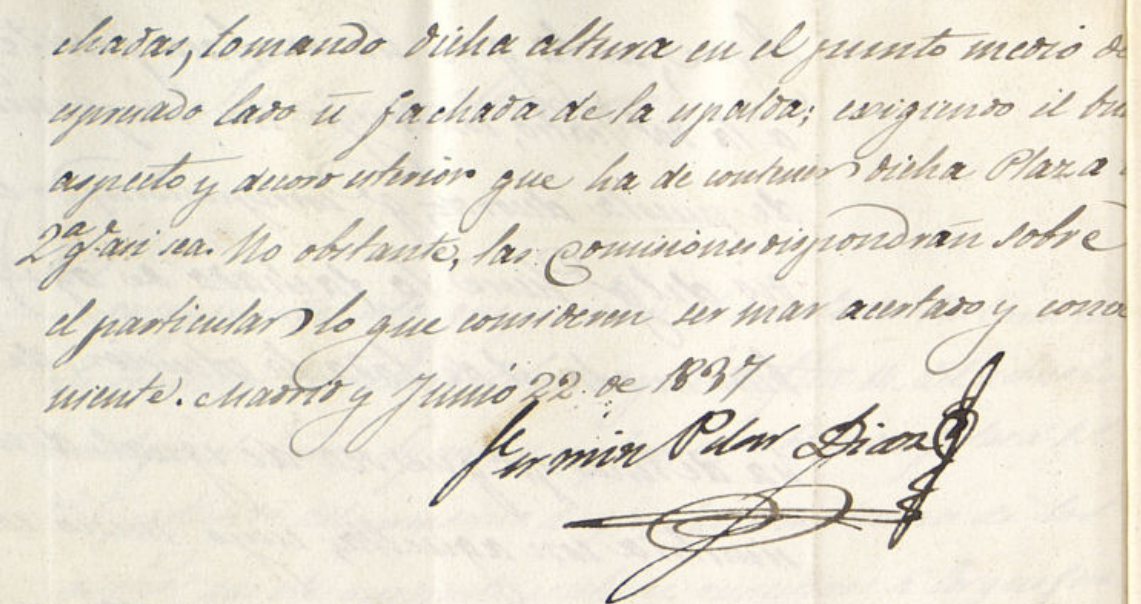 chadas, tomando dicha altura en el punto medio de
espresado lado ú fachada de la espalda; exigiendo el bu
aspecto y decoro esterior que ha de contener dicha Plaza
2ª q.e asi sea. No obstante, las Comisiones dispondrán sobre
el particular lo que consideren ser mas acertado y conve
niente. Madrid y Junio 22 de 1837
Fermin Pilar Diaz